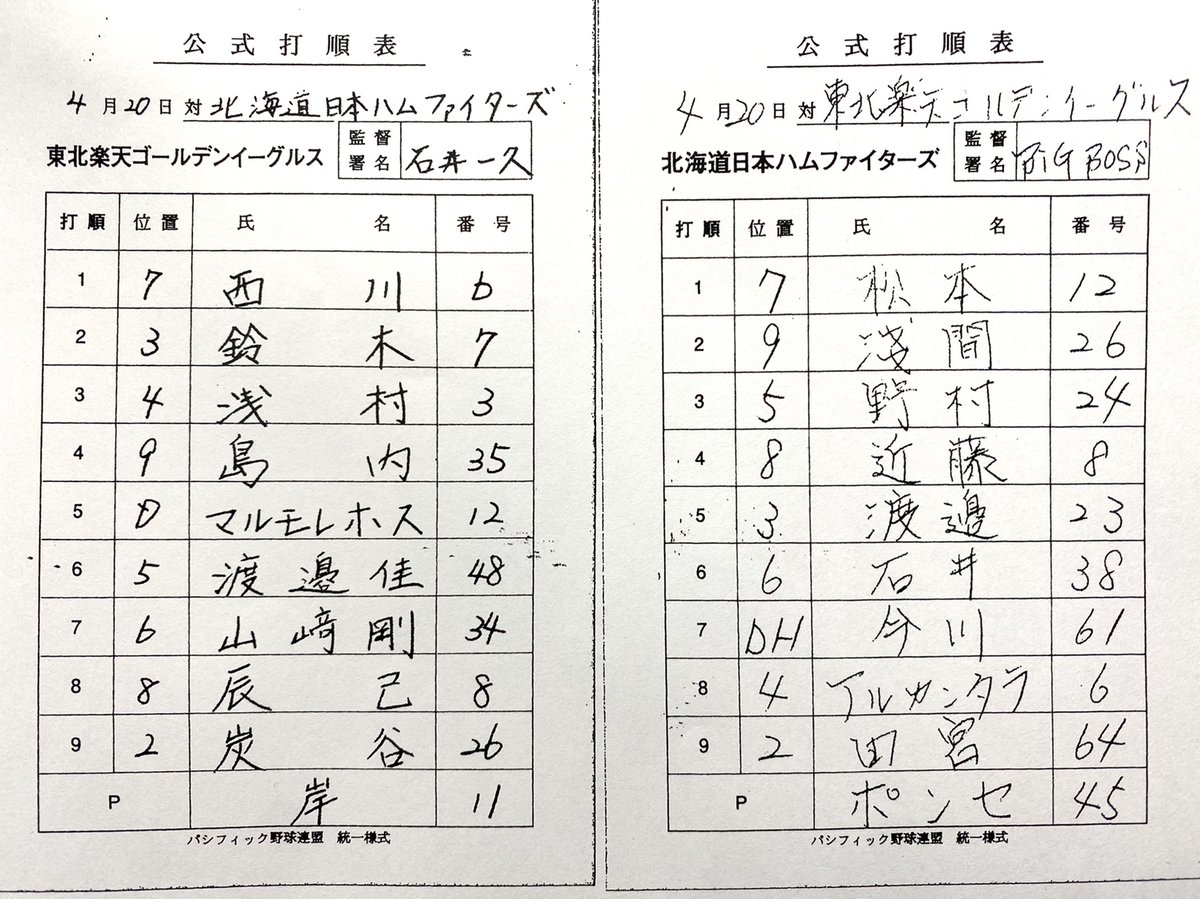 公式打順表
4月20日対 北海道日本ハムファイターズ
東北楽天ゴールデンイーグルス 監督署名 石井一久
打順 位置 氏名 番号
1 7 西川 6
2 3 鈴木 7
3 4 浅村 3
4 9 島内 35
5 D マルモレホス 12
6 5 渡邊佳 48
7 6 山﨑剛 34
8 8 辰己 8
9 2 炭谷 26
P 岸 11
パシフィック野球連盟 統一様式
公式打順表
4月20日対 東北楽天ゴールデンイーグルス
北海道日本ハムファイターズ 監督署名 BIG BOSS
打順 位置 氏名 番号
1 7 松本 12
2 9 淺間 26
3 5 野村 24
4 8 近藤 8
5 3 渡邉 23
6 6 石井 38
7 DH 今川 61
8 4 アルカンタラ 6
9 2 田宮 64
P ポンセ 45
パシフィック野球連盟 統一様式